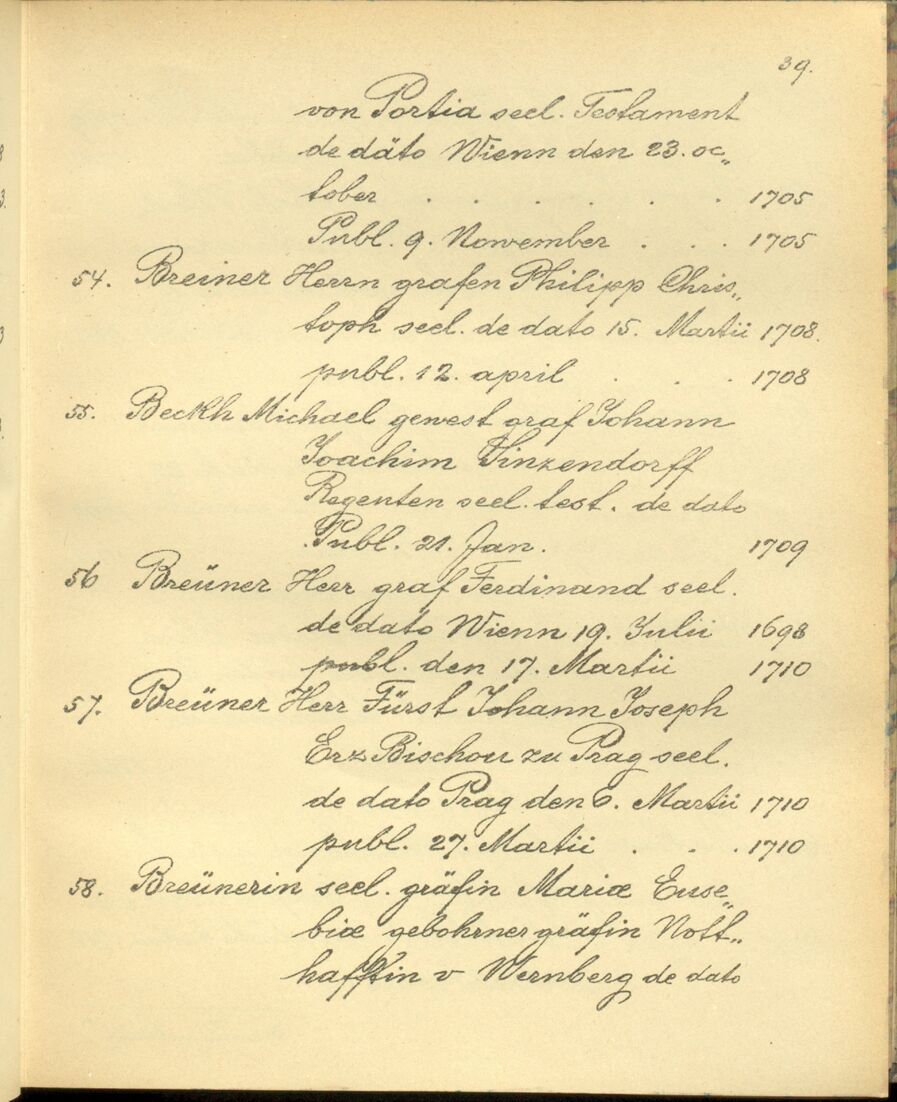 39.
von Portia seel. Testament
de däto Wienn den 23. oc„
tober . . . . . . 1705
Publ. 9. Nowember . . . 1705
54. Breiner Herrn grafen Philipp Chris„
toph seel. de dato 15. Martii 1708.
publ. 12. april . . . 1708
55. Beckh Michael gewest graf Johann
Joachim Sinzendorff
Regenten seel. test. de dato
Publ. 21. Jan. 1709
56 Breüner Herr graf Ferdinand seel.
de dato Wienn 19. Julii 1698
publ. den 17. Martii 1710
57. Breüner Herr Fürst Johann Joseph
Erz Bischou zu Prag seel.
de dato Prag den 6. Martii 1710
publ. 27. Martii . . . 1710
58. Breünerin seel. gräfin Mariæ Euse„
biæ gebohrner gräfin Nott„
hafftin v Wernberg de dato